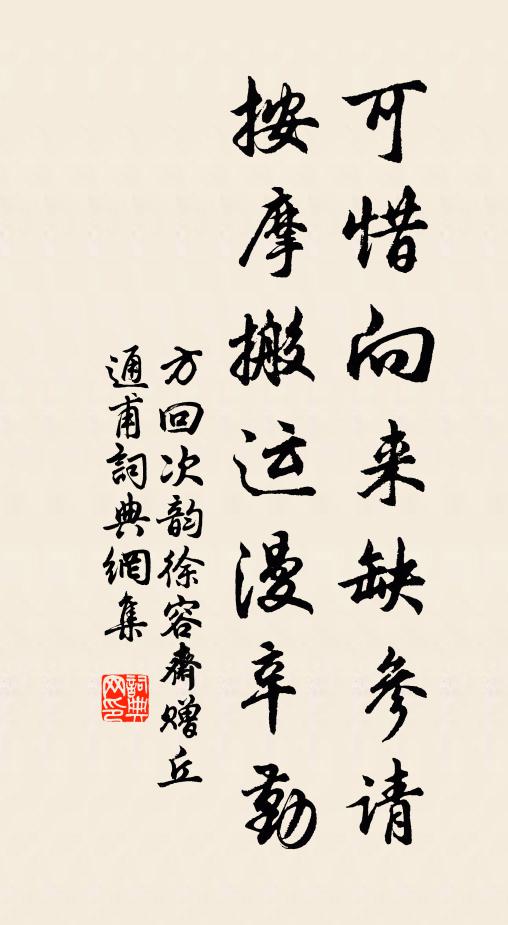 可惜向来缺参请
按摩搬运漫辛勤
方回次韵徐容斋赠丘
通甫詞典網集
詞典网印